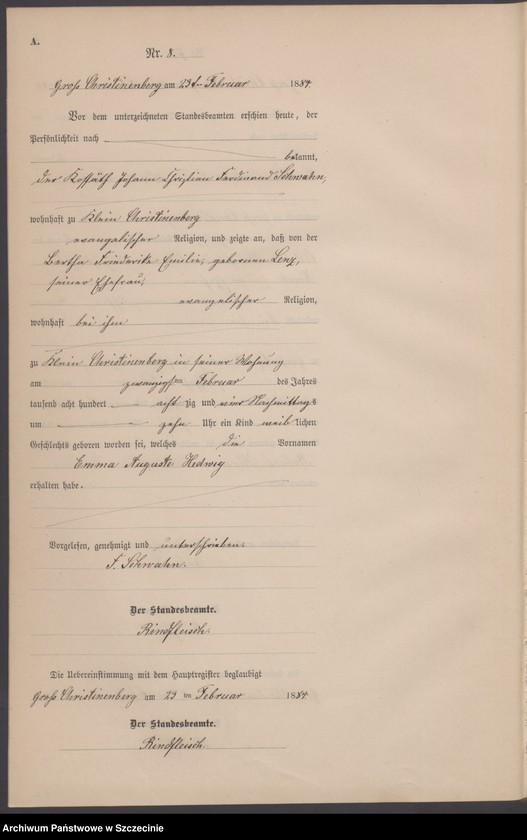 A.
Nr. 8.
Groß Christinenberg am 23ten Februar 1884.
Vor dem unterzeichneten Standesbeamten erschien heute, der
Persönlichkeit nach
bekannt,
der Kossäth Johann Christian Ferdinand Schwahn,
wohnhaft zu Klein Christinenberg
evangelischer Religion, und zeigte an, daß von der
Bertha Friederike Emilie, gebornen Lenz,
seiner Ehefrau,
evangelischer Religion,
wohnhaft bei ihm
zu Klein Christinenberg in seiner Wohnung
am zwanzigsten Februar des Jahres
tausend acht hundert acht zig und vier Nachmittags
um zehn Uhr ein Kind weiblichen
Geschlechts geboren worden sei, welches die Vornamen
Emma Auguste Hedwig
erhalten habe.
Vorgelesen, genehmigt und unterschrieben.
F. Schwahn.
Der Standesbeamte.
Rindfleisch.
Die Uebereinstimmung mit dem Hauptregister beglaubigt
Groß Christinenberg am 23 ten Februar 1884
Der Standesbeamte.
Rindfleisch.
Archiwum Państwowe w Szczecinie